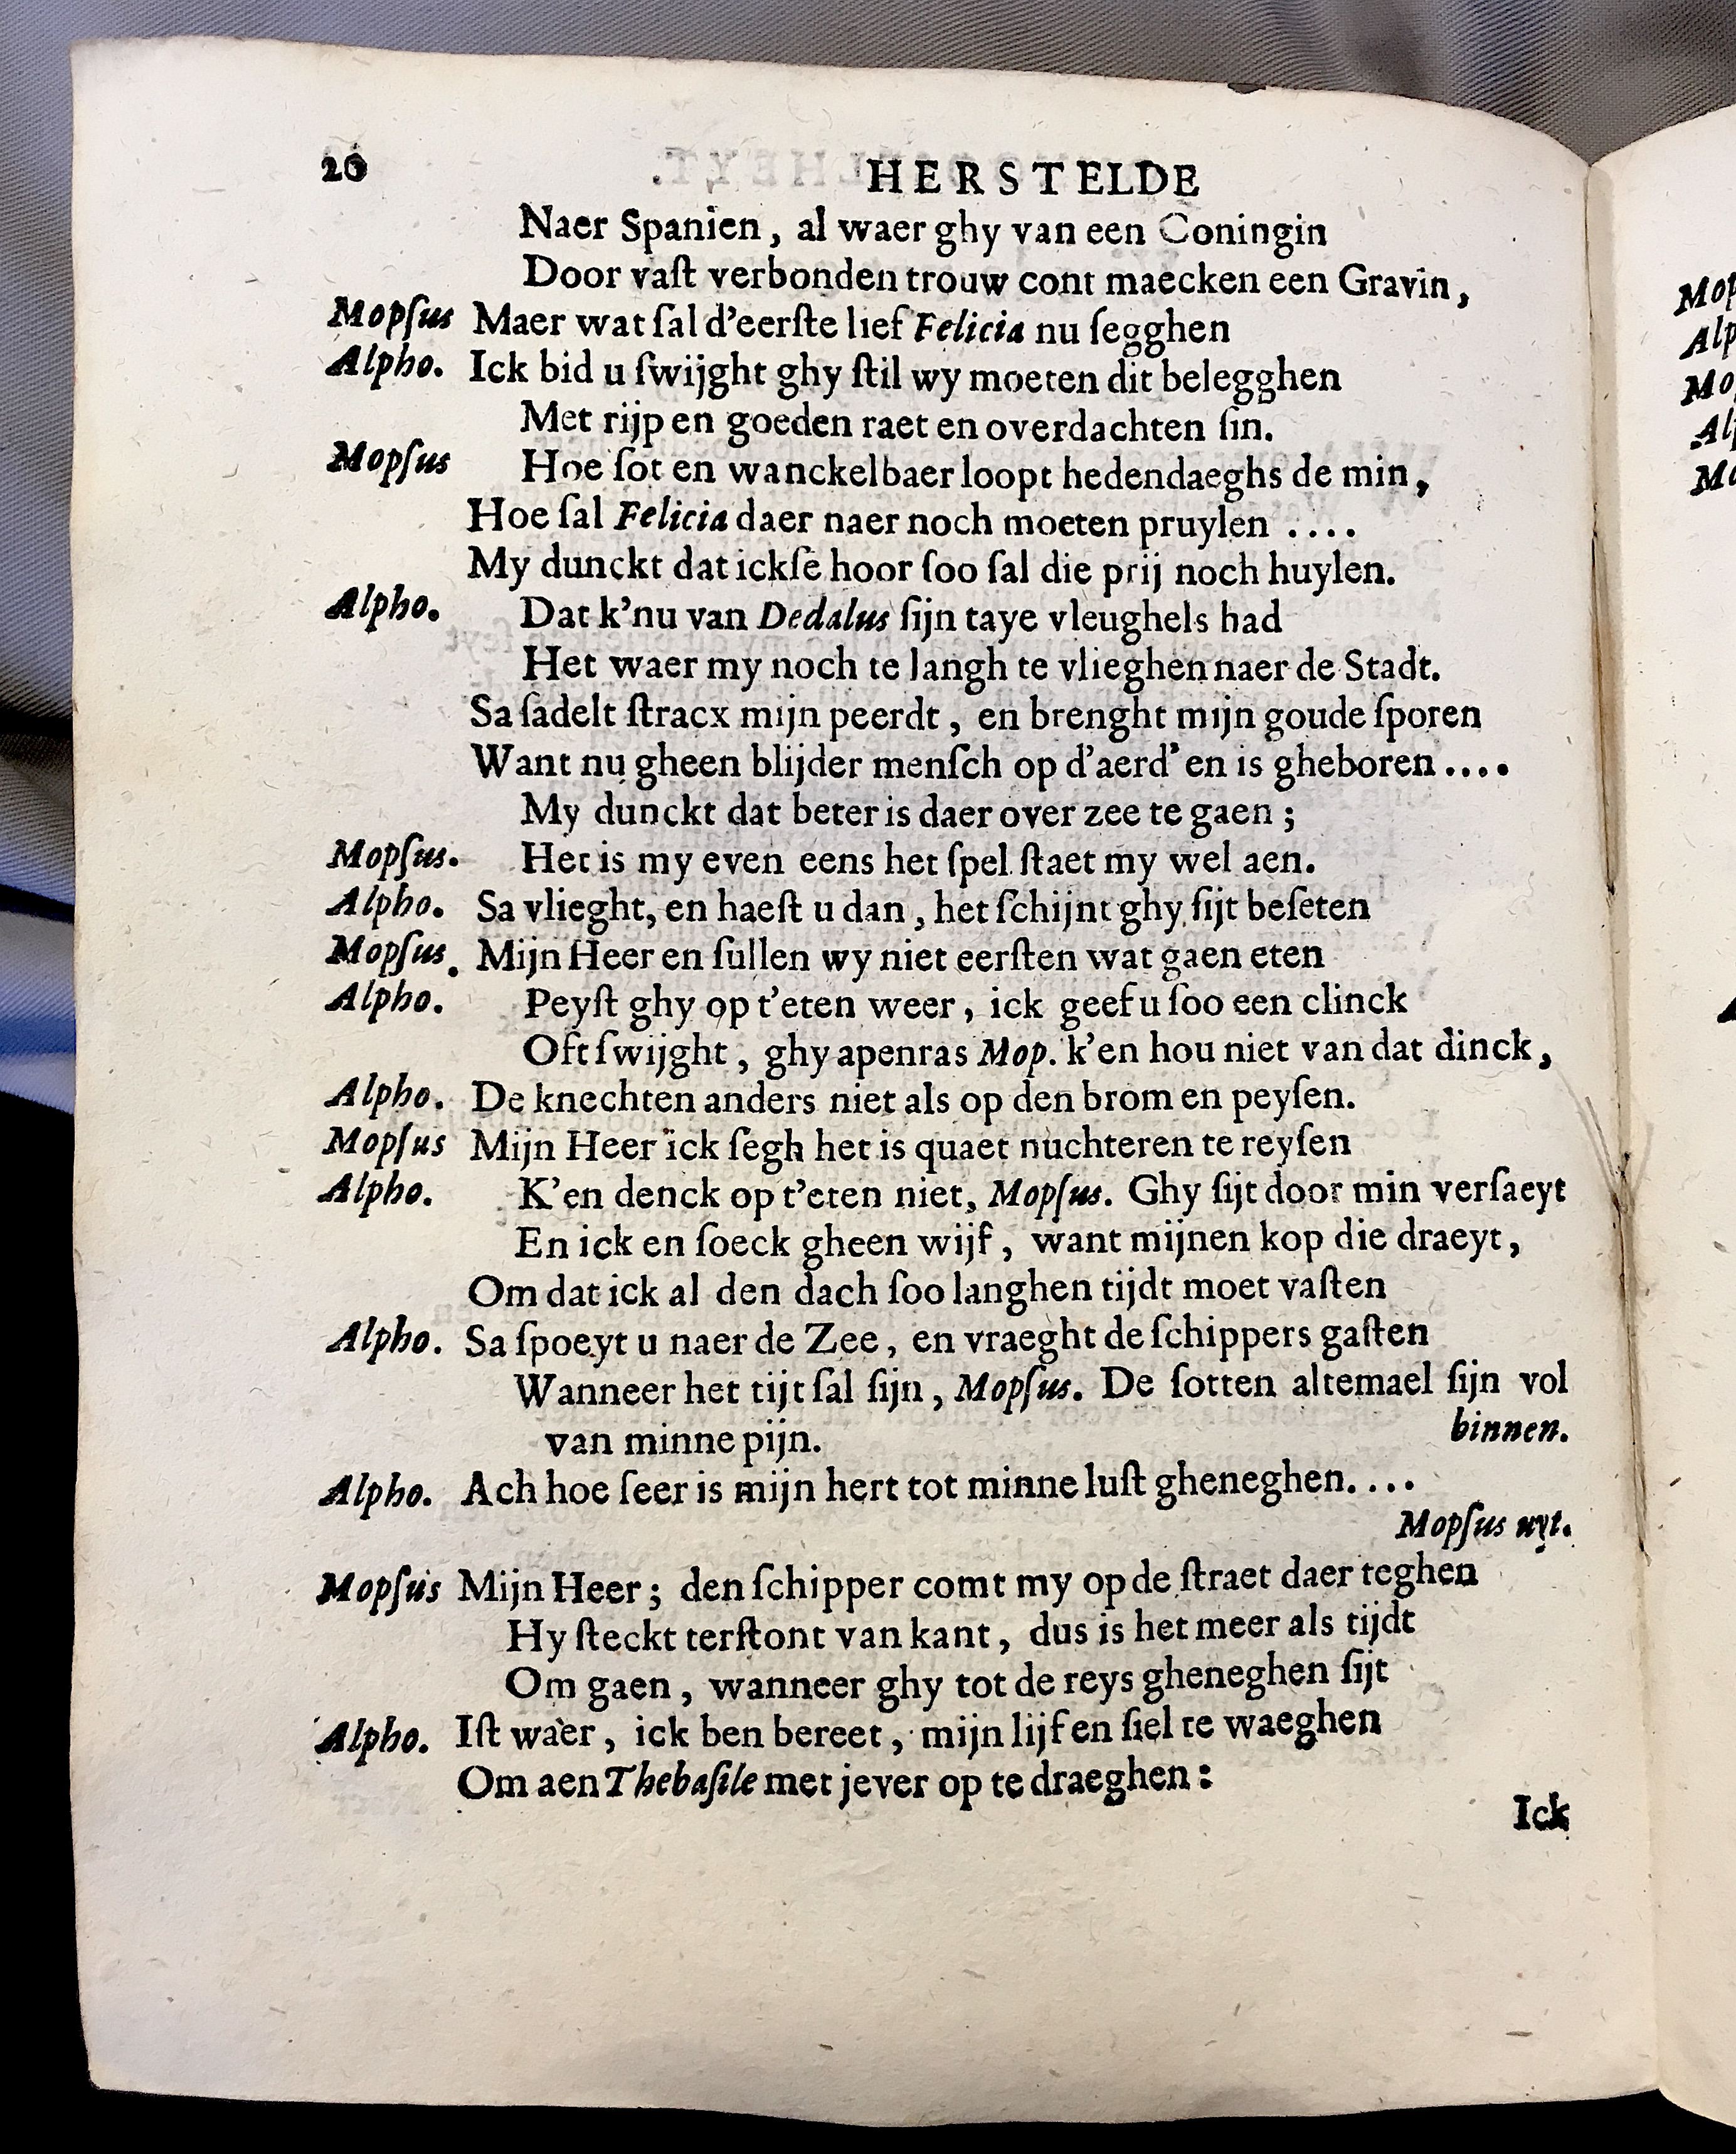 20 HERSTELDE
Naer Spanien, al waer ghy van een Coningin
Door vaſt verbonden trouw cont maecken een Gravin,
Mopſus Maer wat ſal d'eerſte lief Felicia nu ſegghen
Alpho. Ick bid u ſwijght ghy ſtil wy moeten dit belegghen
Met rijp en goeden raet en overdachten ſin.
Mopſus Hoe ſot en wanckelbaer loopt hedendaeghs de min,
Hoe ſal Felicia daer naer noch moeten pruylen ....
My dunckt dat ickſe hoor ſoo ſal die prij noch huylen.
Alpho. Dat k'nu van Dedalus ſijn taye vleughels had
Het waer my noch te langh te vlieghen naer de Stadt.
Sa ſadelt ſtracx mijn peerdt, en brenght mijn goude ſporen
Want nu gheen blijder menſch op d'aerd' en is gheboren....
My dunckt dat beter is daer over zee te gaen;
Mopſus. Het is my even eens het ſpel ſtaet my wel aen.
Alpho. Sa vlieght, en haeſt u dan, het ſchijnt ghy ſijt beſeten
Mopſus. Mijn Heer en ſullen wy niet eerſten wat gaen eten
Alpho. Peyſt ghy op t'eten weer, ick geef u ſoo een clinck
Oft ſwijght, ghy apenras Mop. k'en hou niet van dat dinck,
Alpho. De knechten anders niet als op den brom en peyſen.
Mopſus Mijn Heer ick ſegh het is quaet nuchteren te reyſen
Alpho. K'en denck op t'eten niet, Mopſus. Ghy ſijt door min verſaeyt
En ick en ſoeck gheen wijf, want mijnen kop die draeyt,
Om dat ick al den dach ſoo langhen tijdt moet vaſten
Alpho. Sa ſpoeyt u naer de Zee, en vraeght de ſchippers gaſten
Wanneer het tijt ſal ſijn, Mopſus. De ſotten altemael ſijn vol
van minne pijn. binnen.
Alpho. Ach hoe ſeer is mijn hert tot minne luſt gheneghen....
Mopſus uyt.
Mopſus Mijn Heer; den ſchipper comt my op de ſtraet daer teghen
Hy ſteckt terſtont van kant, dus is het meer als tijdt
Om gaen, wanneer ghy tot de reys gheneghen ſijt
Alpho. Iſt waer, ick ben bereet, mijn lijf en ſiel te waeghen
Om aen Thebaſile met jever op te draeghen:
Ick
Mop
Alp
Mo
Alp
Mo